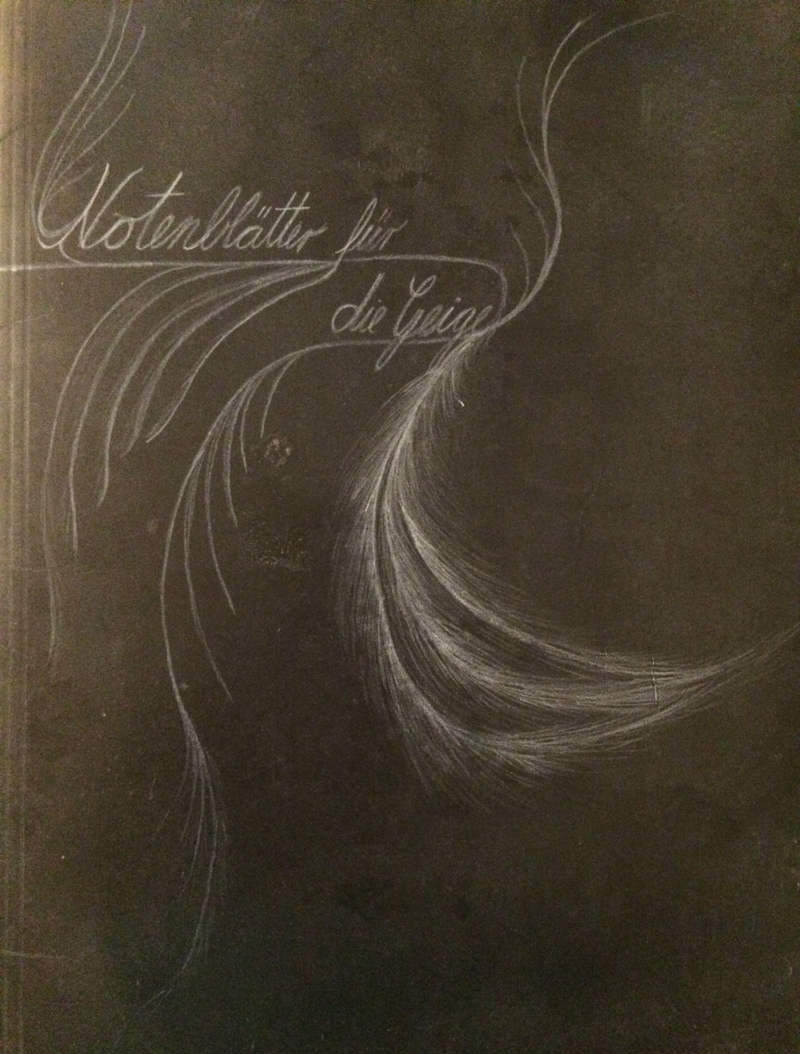 Notenblätter für
die Geige